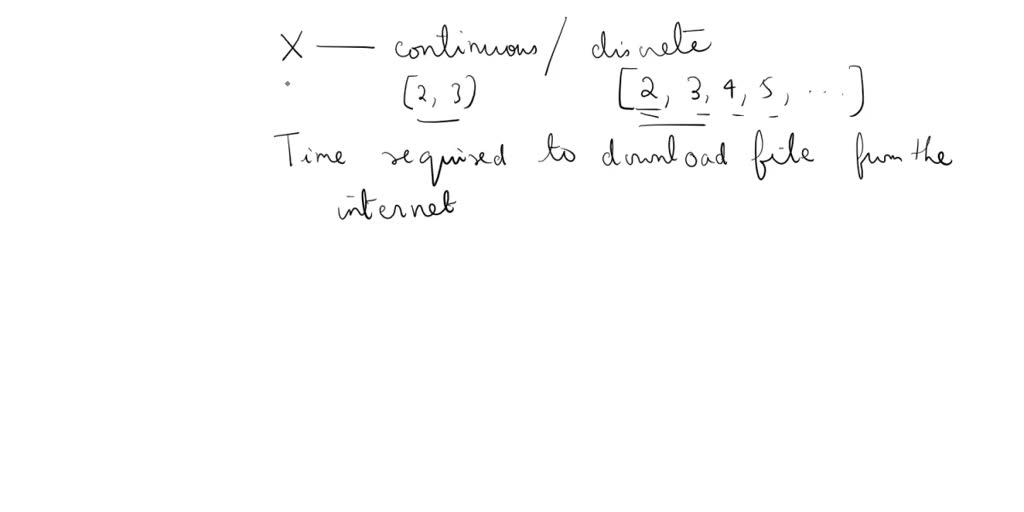 X — continuous / discrete
[2, 3) [2, 3, 4, 5, ...]
Time required to download file from the
internet